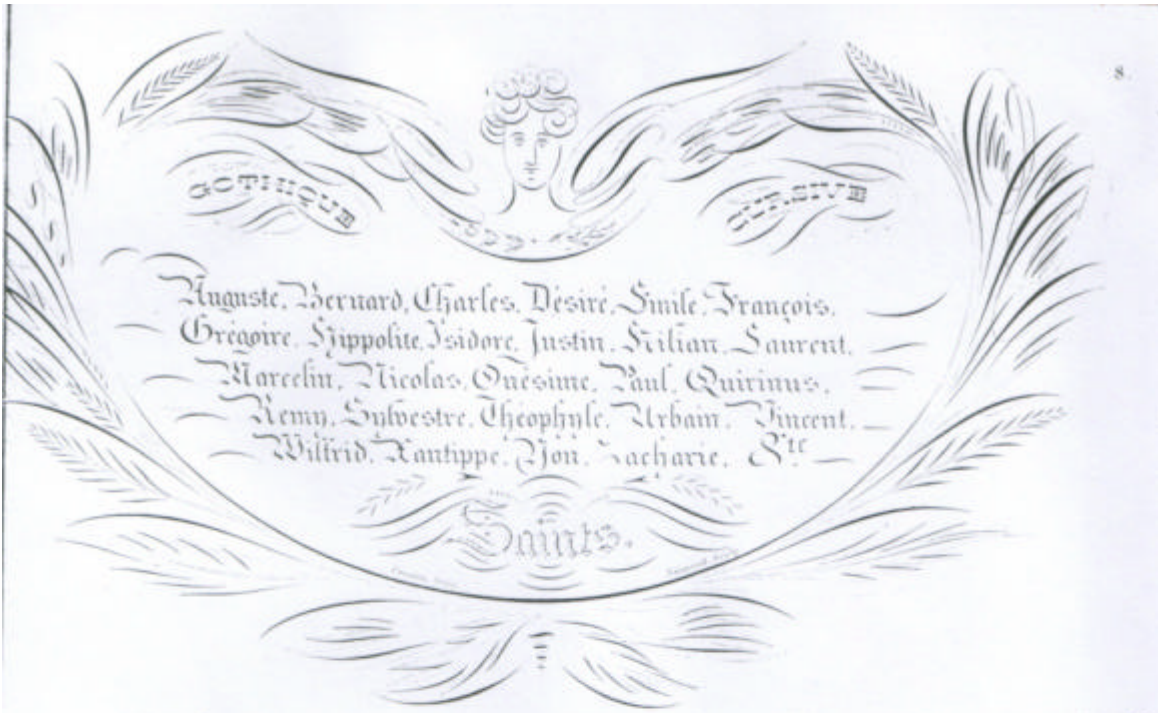 8.
GOTHIQUE CURSIVE
Auguste, Bernard, Charles, Désiré, Emile, François,
Grégoire, Hippolite, Isidore, Justin, Kilian, Laurent,
Marcelin, Nicolas, Onésime, Paul, Quirinus,
Remy, Sylvestre, Théophyle, Urbain, Vincent,
Wilfrid, Xantippe, Yon, Zacharie, &tc
Saints.